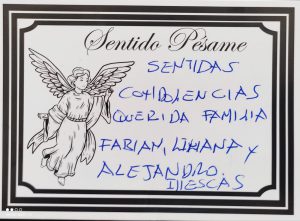 Sentido Pésame
SENTIDAS
CONDOLENCIAS
QUERIDA FAMILIA
FABIAN, LILIANA Y
ALEJANDRO.
ILLESCAS